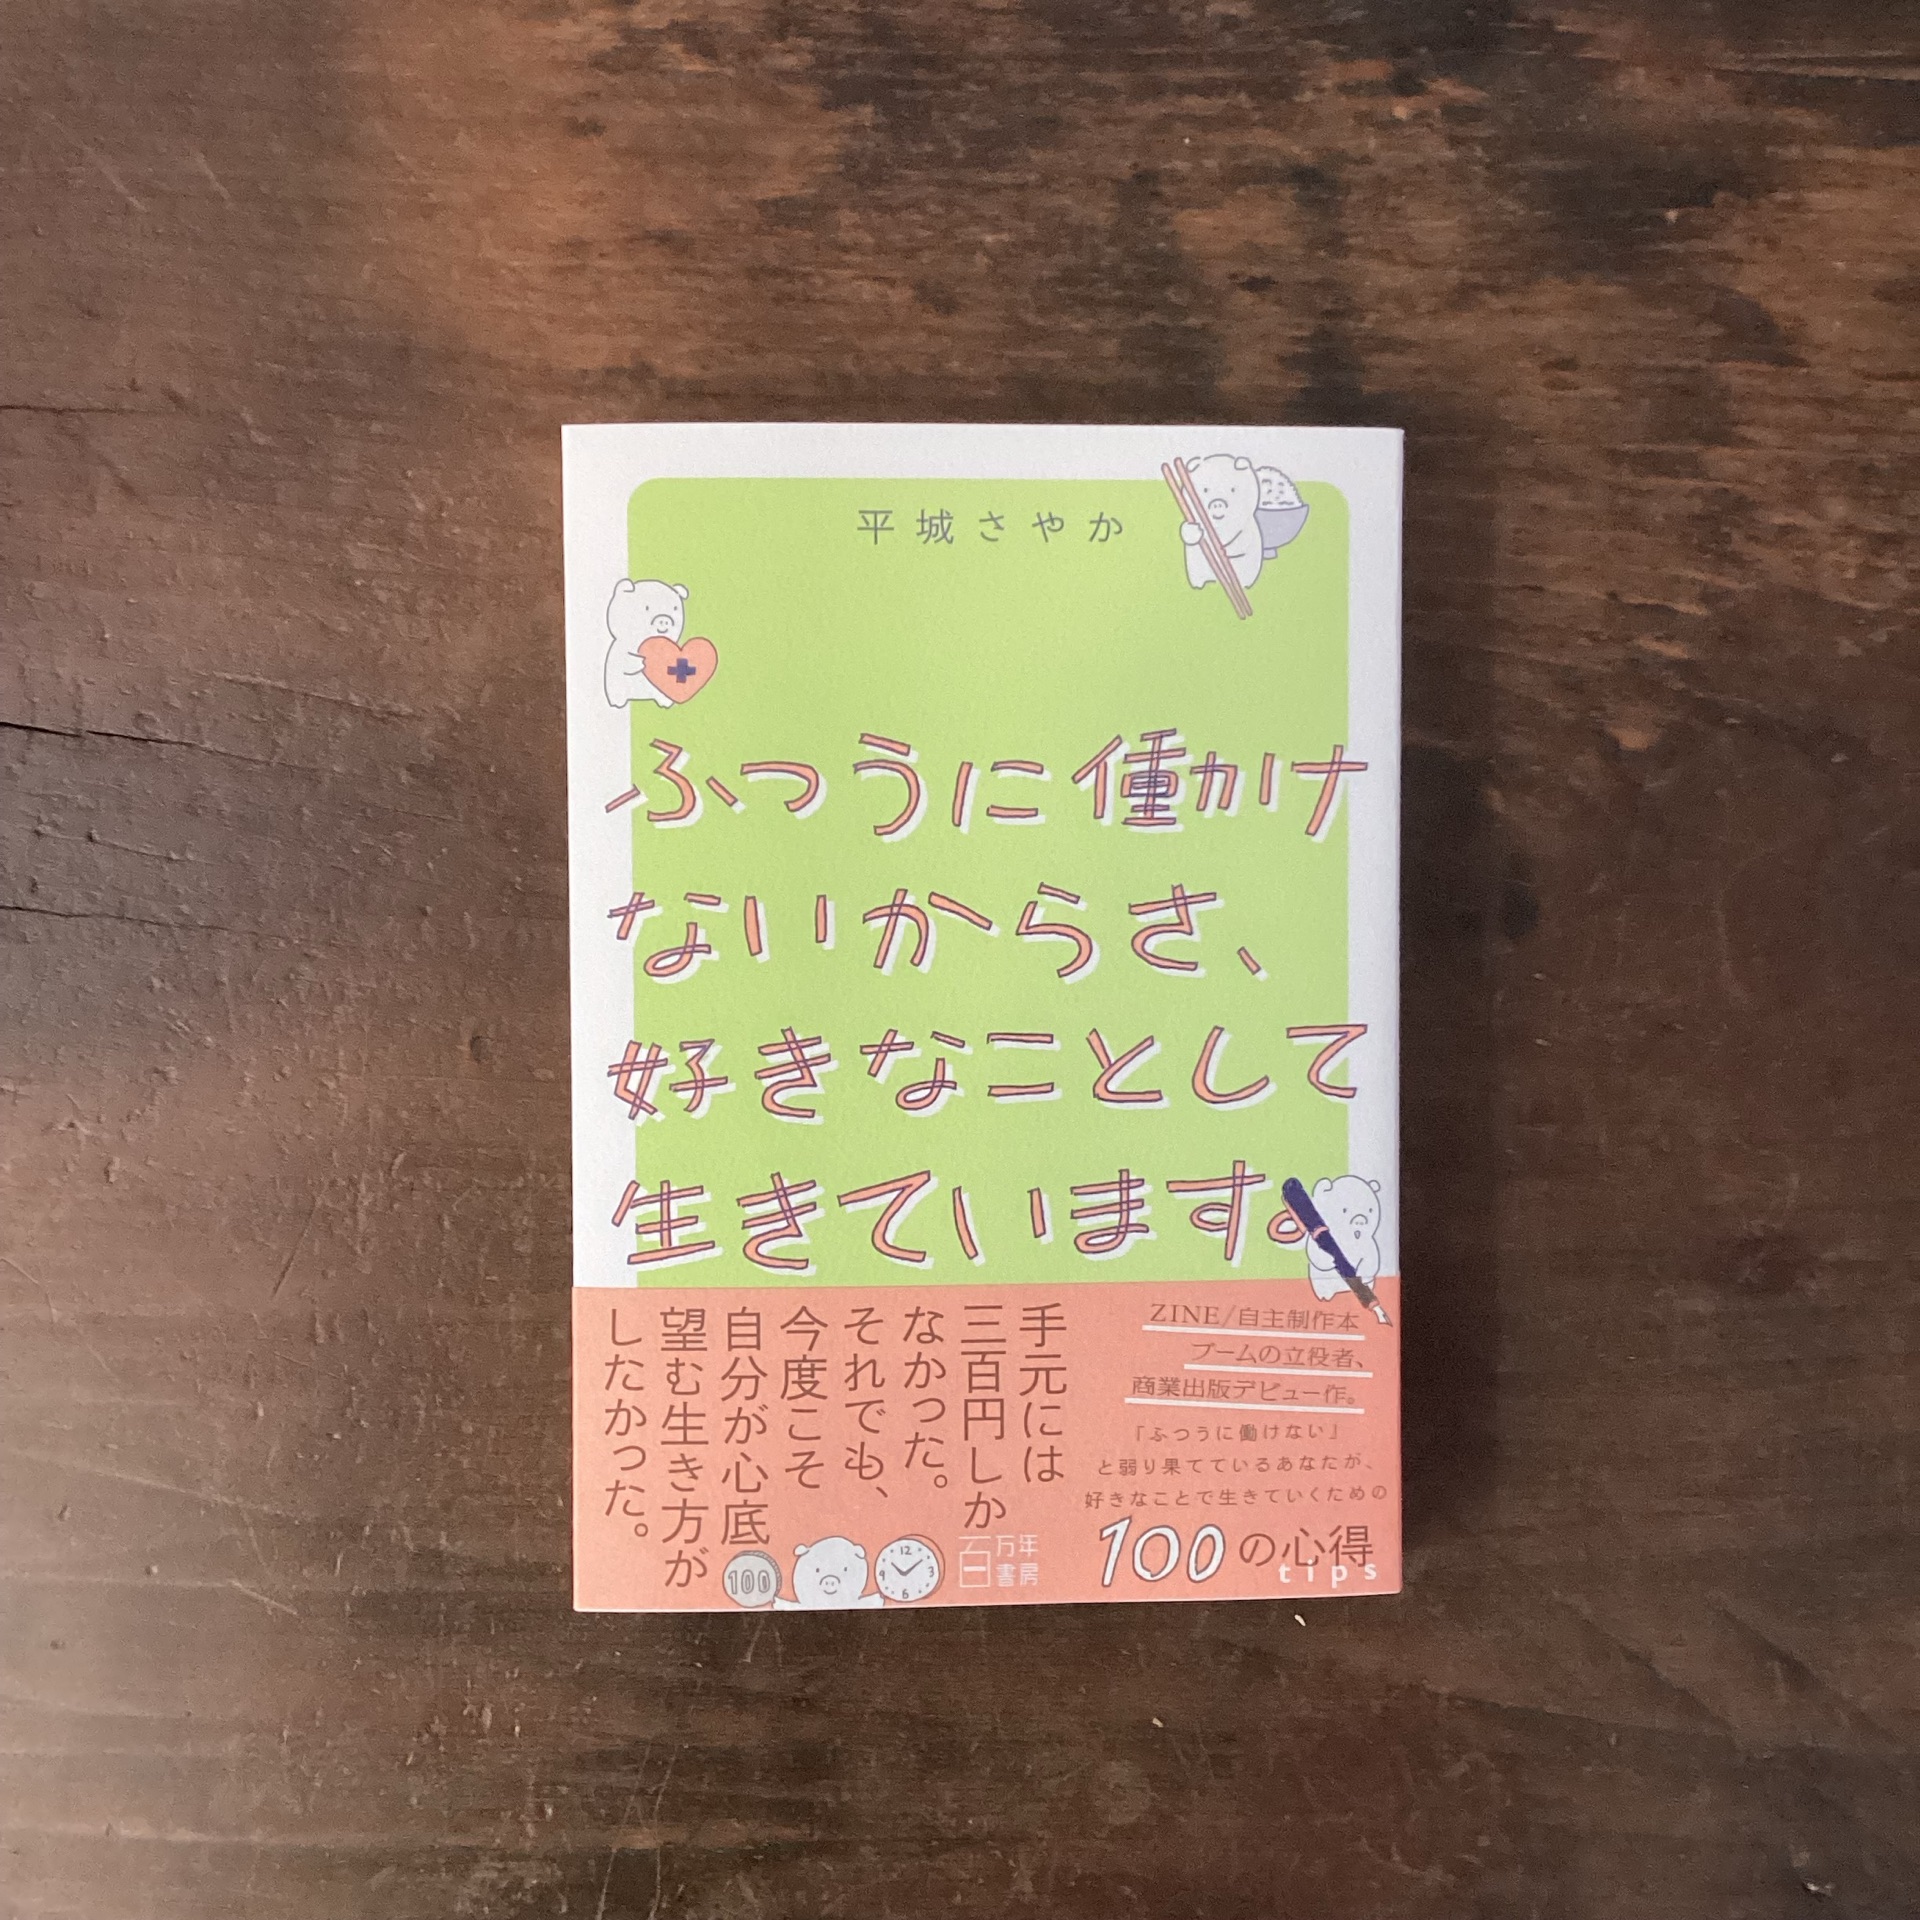 平城さやか
ふつうに働かけ
ないからさ、
好きなことして
生きています。
手元には
三百円しか
なかった。
それでも、
今度こそ
自分が心底
望む生き方が
したかった。
ZINE/自主制作本
ブームの立役者、
商業出版デビュー作。
「ふつうに働けない」
と弱り果てているあなたが、
好きなことで生きていくための
100の心得
tips
100
12
3
6
9
百万年
書房